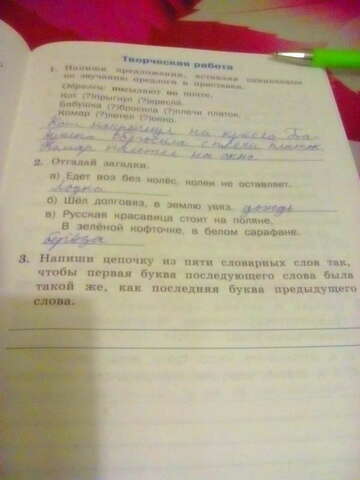 Творческая работа
1. Напиши предложения, вставляя одинаковые
по звучанию предлоги и приставки.
Образец: высылают по почте.
Кот (?)прыгнул (?)кресла.
Бабушка (?)бросила (?)плечи платок.
Комар (?)летел (?)окно.
Кот напрыгнул на кресло Ба-
бушка с плечи платок
Комар на окно
2. Отгадай загадки.
а) Едет воз без колёс, колеи не оставляет.
лодка
б) Шёл долговяз, в землю увяз. дождь
в) Русская красавица стоит на поляне,
В зелёной кофточке, в белом сарафане.
берёза
3. Напиши цепочку из пяти словарных слов так,
чтобы первая буква последующего слова была
такой же, как последняя буква предыдущего
слова.